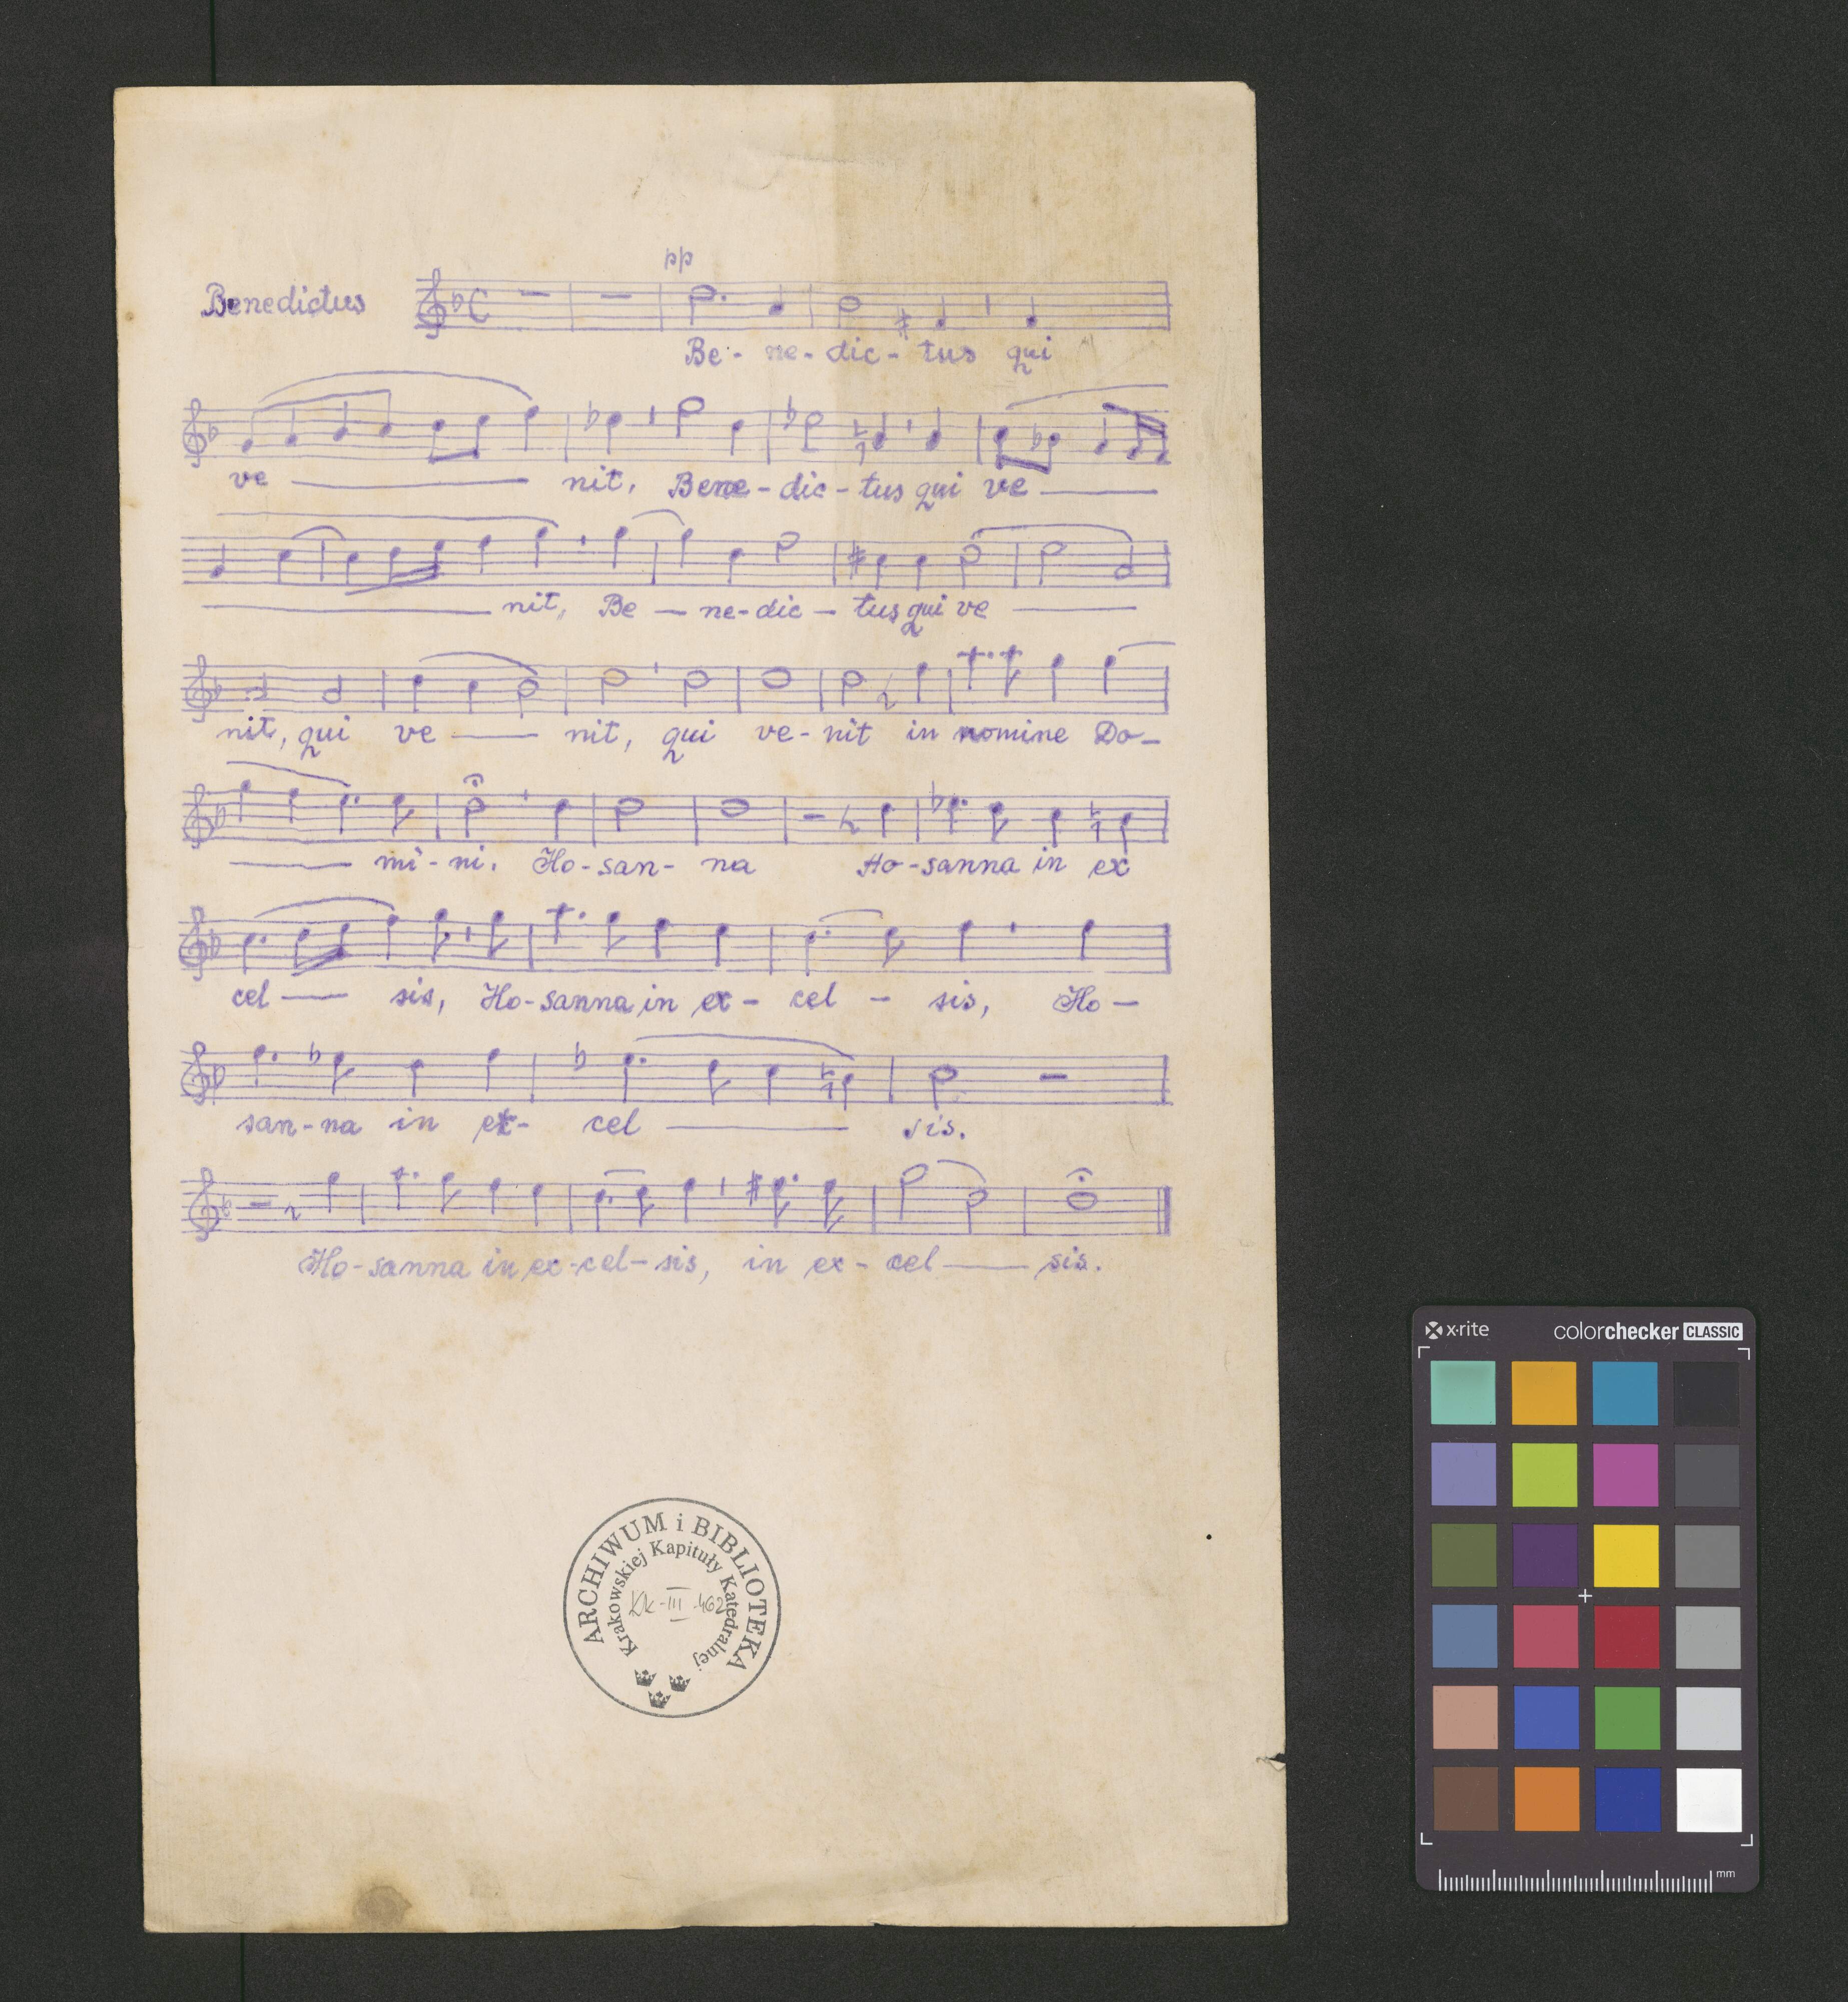 pp
Benedictus
Be - ne - dic - tus qui
ve — nit, Bene - dic - tus qui ve —
— nit, Be — ne - dic — tus qui ve —
nit, qui ve — nit, qui ve - nit in nomine Do -
— mi - ni. Ho - san - na Ho - sanna in ex
cel — sis, Ho - sanna in ex - cel - sis, Ho -
san - na in ex - cel — sis.
Ho - sanna in ex - cel - sis, in ex - cel — sis.
ARCHIWUM i BIBLIOTEKA
Krakowskiej Kapituły Katedralnej
Kk-III-462
x·rite colorchecker CLASSIC
mm